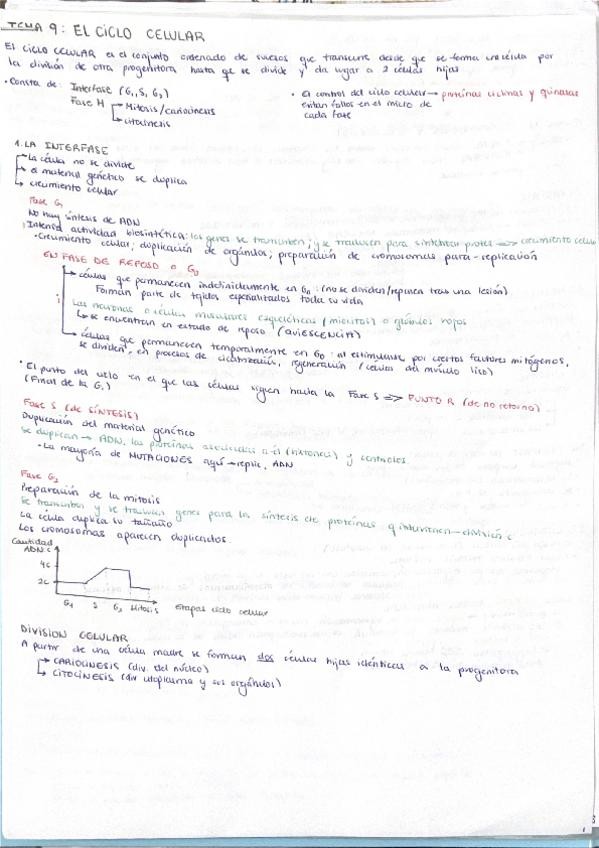 TEMA 9: EL CICLO CELULAR
El CICLO CELULAR es el conjunto ordenado de sucesos que transcurre desde que se forma una célula por
la división de otra progenitora hasta que se divide y da lugar a 2 células hijas
• Consta de: Interfase (G₁, S, G₂)
Fase M → Mitosis/cariocinesis
→ citocinesis
• El control del ciclo celular → proteínas ciclinas y quinasas
evitan fallos en el inicio de
cada fase
1. LA INTERFASE
→ La célula no se divide
→ el material genético se duplica
→ crecimiento celular
Fase G₁
No hay síntesis de ADN
Intensa actividad biosintética: los genes se transcriben y se traducen para sintetizar protes ⇒ crecimiento celular
• Crecimiento celular, duplicación de orgánulos, preparación de cromosomas para replicación
EN FASE DE REPOSO o G₀
→ células que permanecen indefinidamente en G₀: (no se dividen/reparan tras una lesión)
Forman parte de tejidos especializados toda su vida
Las neuronas o células musculares esqueléticas (miocitos) o glóbulos rojos
↳ se encuentran en estado de reposo
→ células que permanecen temporalmente en G₀: al estimularse por ciertos factores mitógenos,
se dividen, en procesos de cicatrización, regeneración (células del músculo liso)
• El punto del ciclo en el que las células siguen hacia la Fase S ⇒ PUNTO R (de no retorno)
(Final de la G₁)
Fase S (de SÍNTESIS)
Duplicación del material genético
Se duplican → ADN, las proteínas asociadas a él (histonas) y centriolos.
• La mayoría de MUTACIONES aquí → replic. ADN
Fase G₂
Preparación de la mitosis
Se transcriben y se traducen genes para la síntesis de proteínas q intervienen → división c
La célula duplica su tamaño
Los cromosomas aparecen duplicados.
Cantidad
ADN: C
4C
2C
G₁ S G₂ Mitosis Etapas ciclo celular
DIVISION CELULAR
A partir de una célula madre se forman dos células hijas idénticas a la progenitora
→ CARIOCINESIS (div. del núcleo)
→ CITOCINESIS (div citoplasma y sus orgánulos)